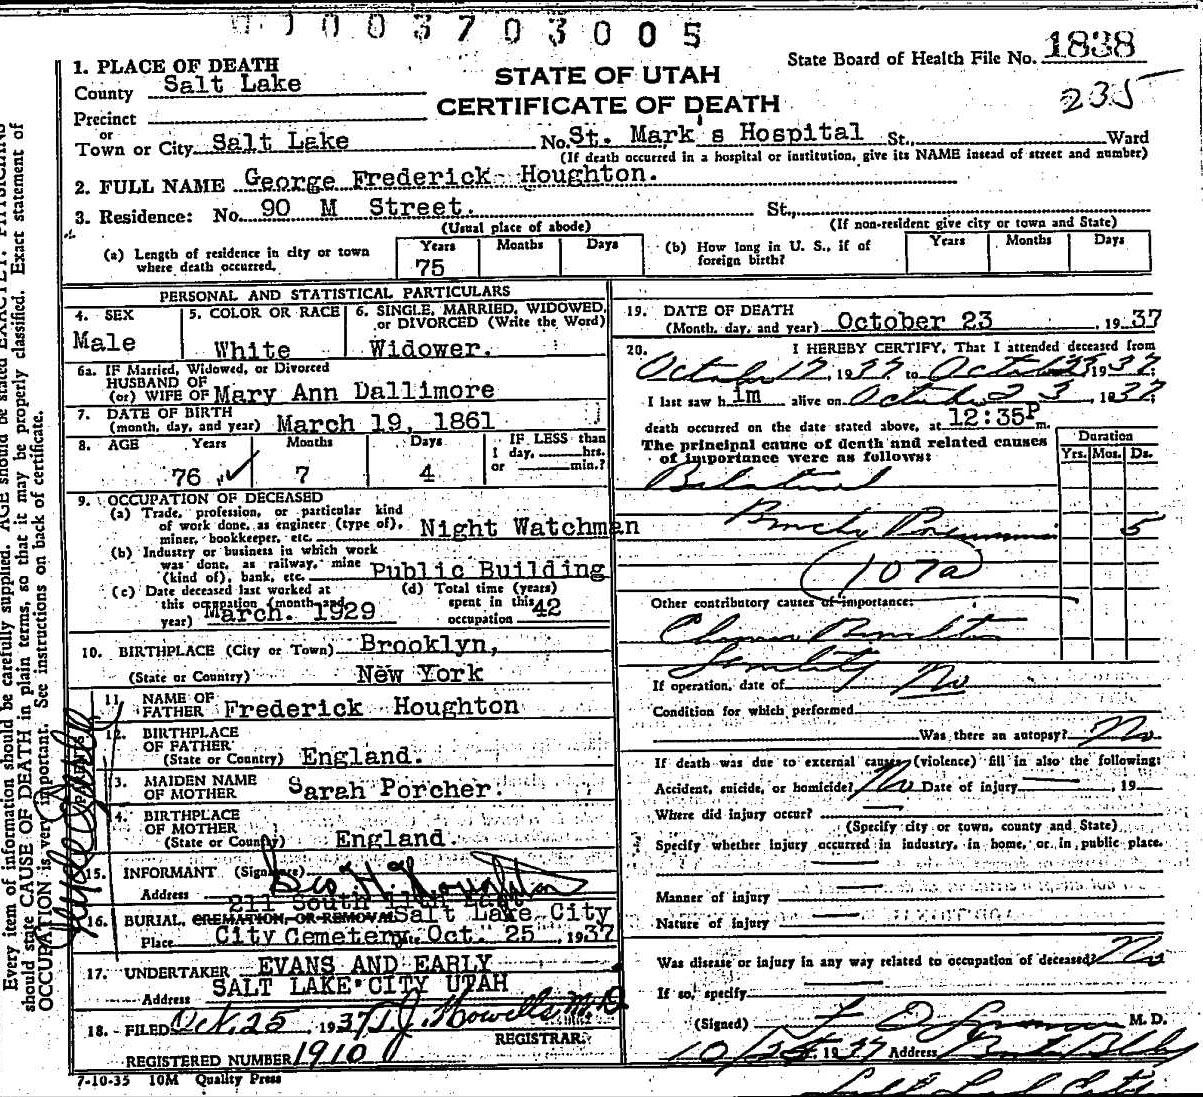 0003703005
State Board of Health File No. 1838
235
STATE OF UTAH
CERTIFICATE OF DEATH
1. PLACE OF DEATH
County Salt Lake
Precinct
or
Town or City Salt Lake No. St. Mark's Hospital St., Ward
(If death occurred in a hospital or institution, give its NAME instead of street and number)
2. FULL NAME George Frederick Houghton.
3. Residence: No. 90 M Street. St.,
(Usual place of abode) (If non-resident give city or town and State)
(a) Length of residence in city or town where death occurred. Years 75 Months Days
(b) How long in U. S., if of foreign birth? Years Months Days
PERSONAL AND STATISTICAL PARTICULARS
4. SEX Male
5. COLOR OR RACE White
6. SINGLE, MARRIED, WIDOWED, or DIVORCED (Write the Word) Widower.
6a. IF Married, Widowed, or Divorced
HUSBAND OF
(or) WIFE OF Mary Ann Dallimore
7. DATE OF BIRTH
(month, day, and year) March 19, 1861
8. AGE Years Months Days IF LESS than
1 day, hrs.
or min.?
76 7 4
9. OCCUPATION OF DECEASED
(a) Trade, profession, or particular kind
of work done, as engineer (type of),
miner, bookkeeper, etc. Night Watchman
(b) Industry or business in which work
was done, as railway, mine
(kind of), bank, etc. Public Building
(c) Date deceased last worked at
this occupation (month and
year) March. 1929
(d) Total time (years)
spent in this
occupation 42
10. BIRTHPLACE (City or Town) Brooklyn,
(State or Country) New York
PARENTS
11. NAME OF
FATHER Frederick Houghton
12. BIRTHPLACE
OF FATHER
(State or Country) England.
13. MAIDEN NAME
OF MOTHER Sarah Porcher.
14. BIRTHPLACE
OF MOTHER
(State or Country) England.
15. INFORMANT (Signature) Geo H Houghton
Address 211 South 11th East
16. BURIAL, CREMATION, OR REMOVAL Salt Lake City
Place City Cemetery Date Oct. 25, 1937
17. UNDERTAKER EVANS AND EARLY
Address SALT LAKE CITY UTAH
18. FILED Oct. 25 1937 T.J. Howells M.D.
REGISTRAR.
REGISTERED NUMBER 1910
7-10-35 10M Quality Press
19. DATE OF DEATH
(Month, day, and year) October 23, 1937
20. I HEREBY CERTIFY, That I attended deceased from
October 17, 1937 to October 23 1937;
I last saw him alive on October 23, 1937;
death occurred on the date stated above, at 12:35P m.
The principal cause of death and related causes
of importance were as follows:
Duration
Yrs. Mos. Ds.
Bilateral
Broncho Pneumonia 5
(107a)
Other contributory causes of importance:
Senility
If operation, date of No
Condition for which performed
Was there an autopsy? No
If death was due to external causes (violence) fill in also the following:
Accident, suicide, or homicide? No Date of injury, 19
Where did injury occur?
(Specify city or town, county and State)
Specify whether injury occurred in industry, in home, or in public place.
Manner of injury
Nature of injury
Was disease or injury in any way related to occupation of deceased? No
If so, specify
(Signed) M. D.
10/25 1937 Address
Salt Lake City
Every item of information should be carefully supplied. AGE should be stated EXACTLY. PHYSICIANS
should state CAUSE OF DEATH in plain terms, so that it may be properly classified. Exact statement of
OCCUPATION is very important. See instructions on back of certificate.